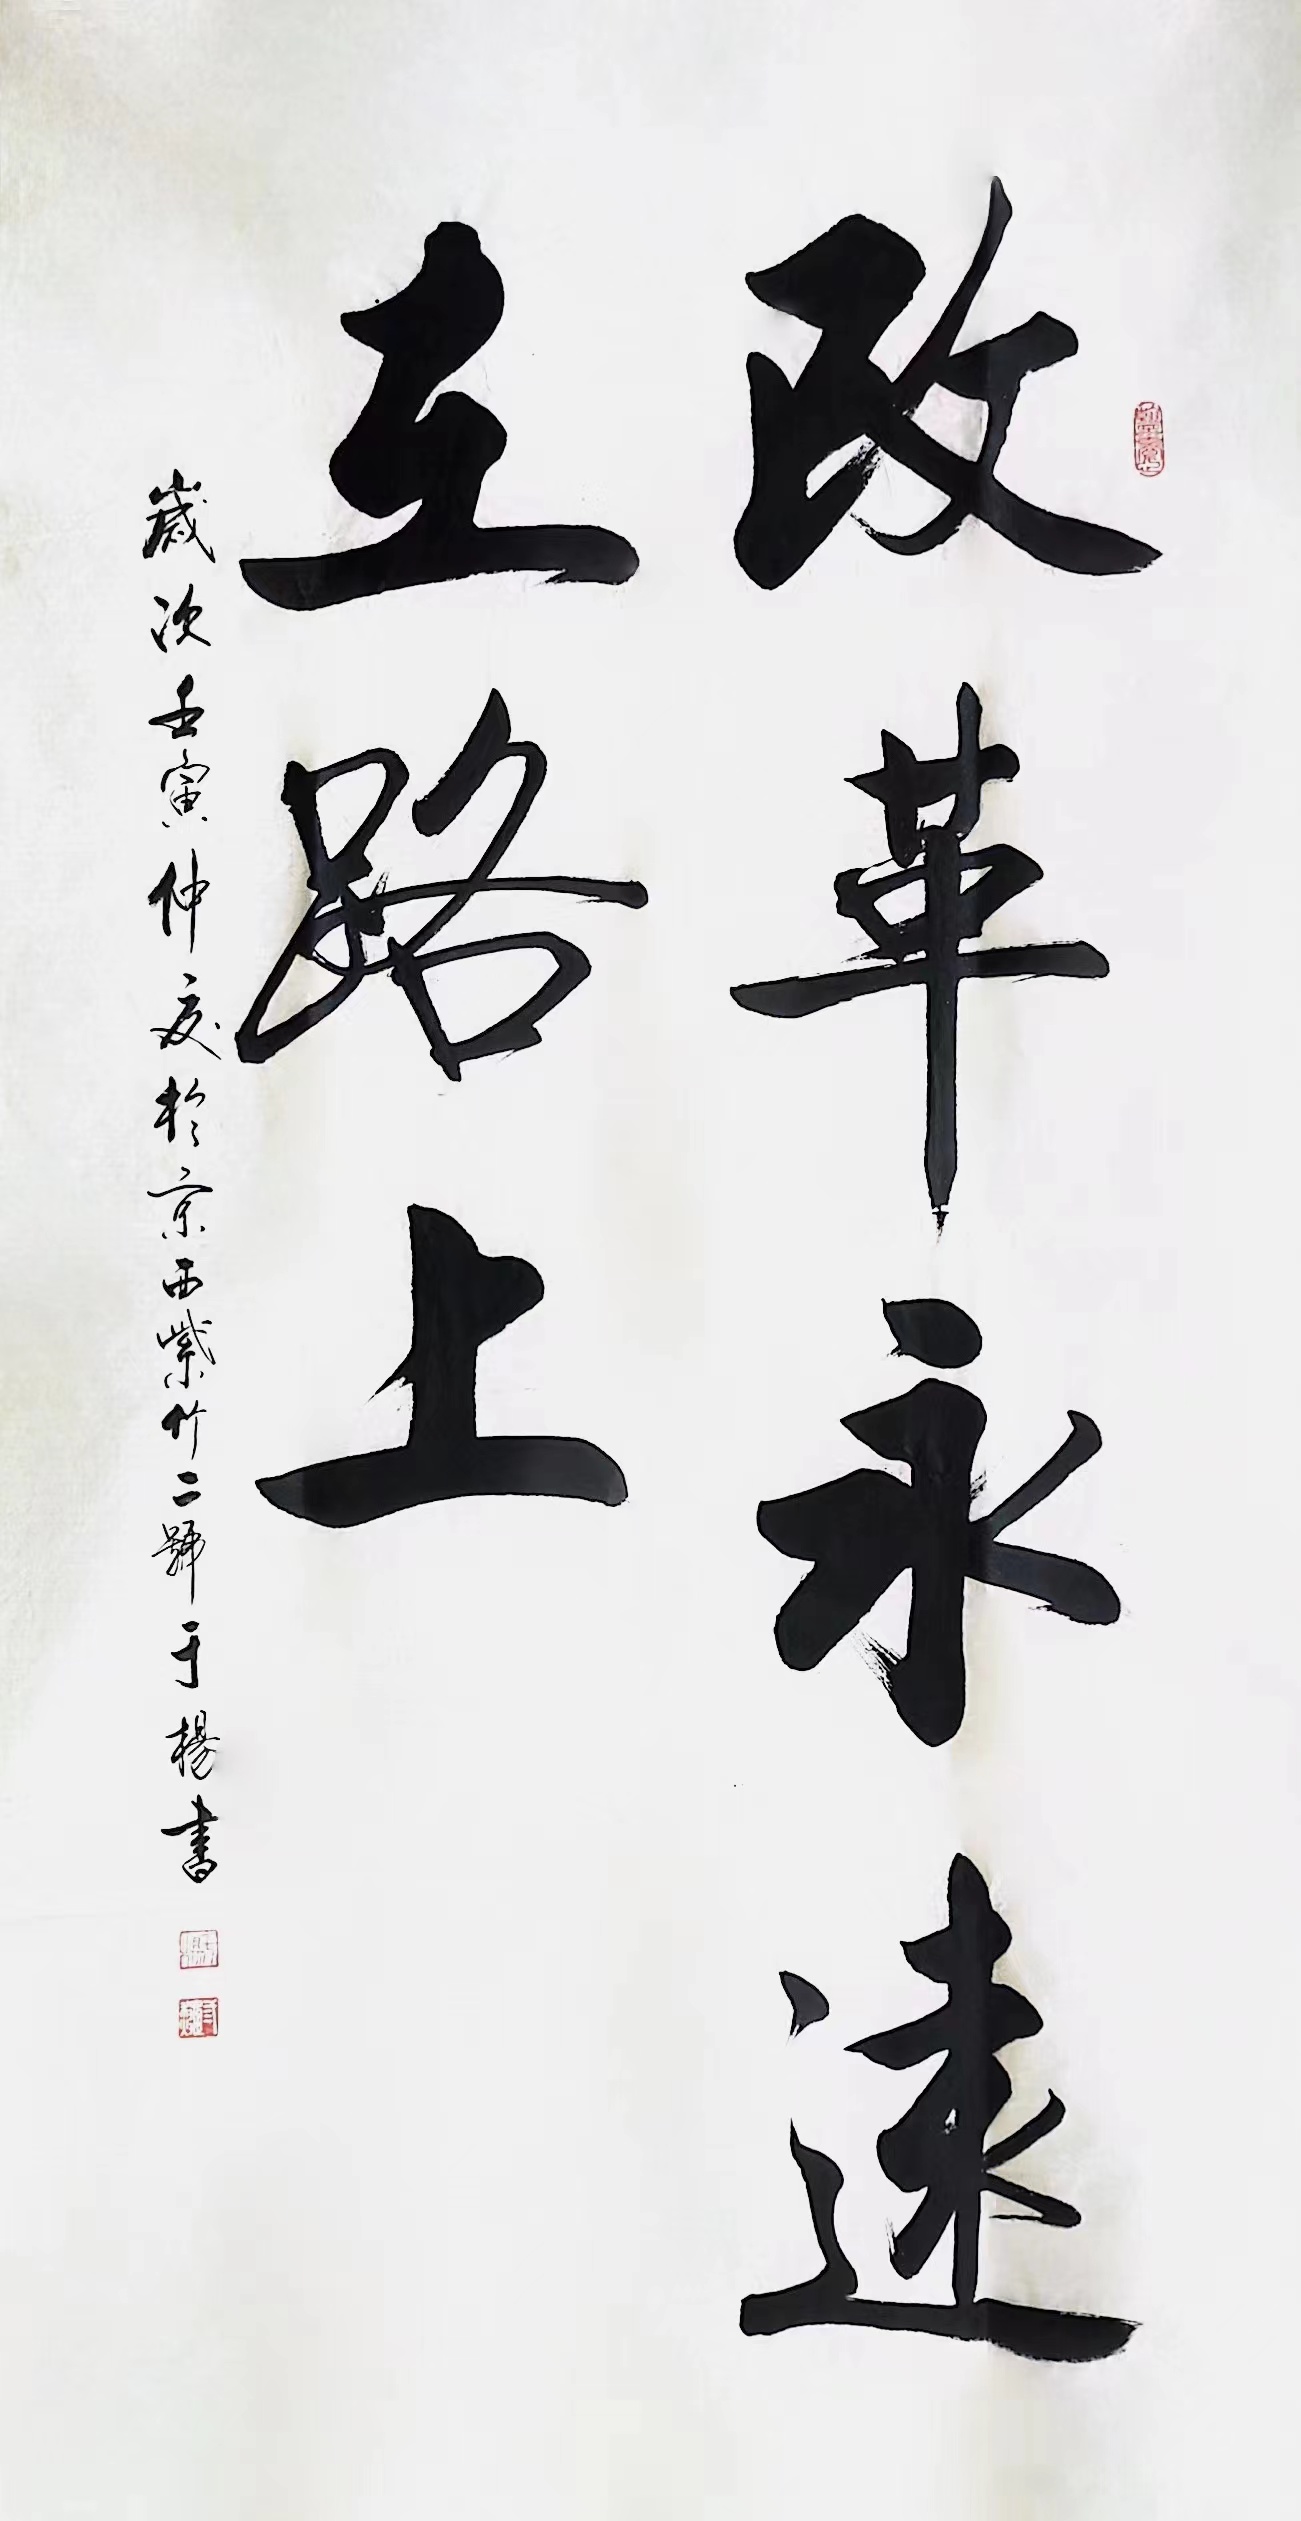 改革永遠
在路上
歲次壬寅仲夏於京西紫竹二號于楊書